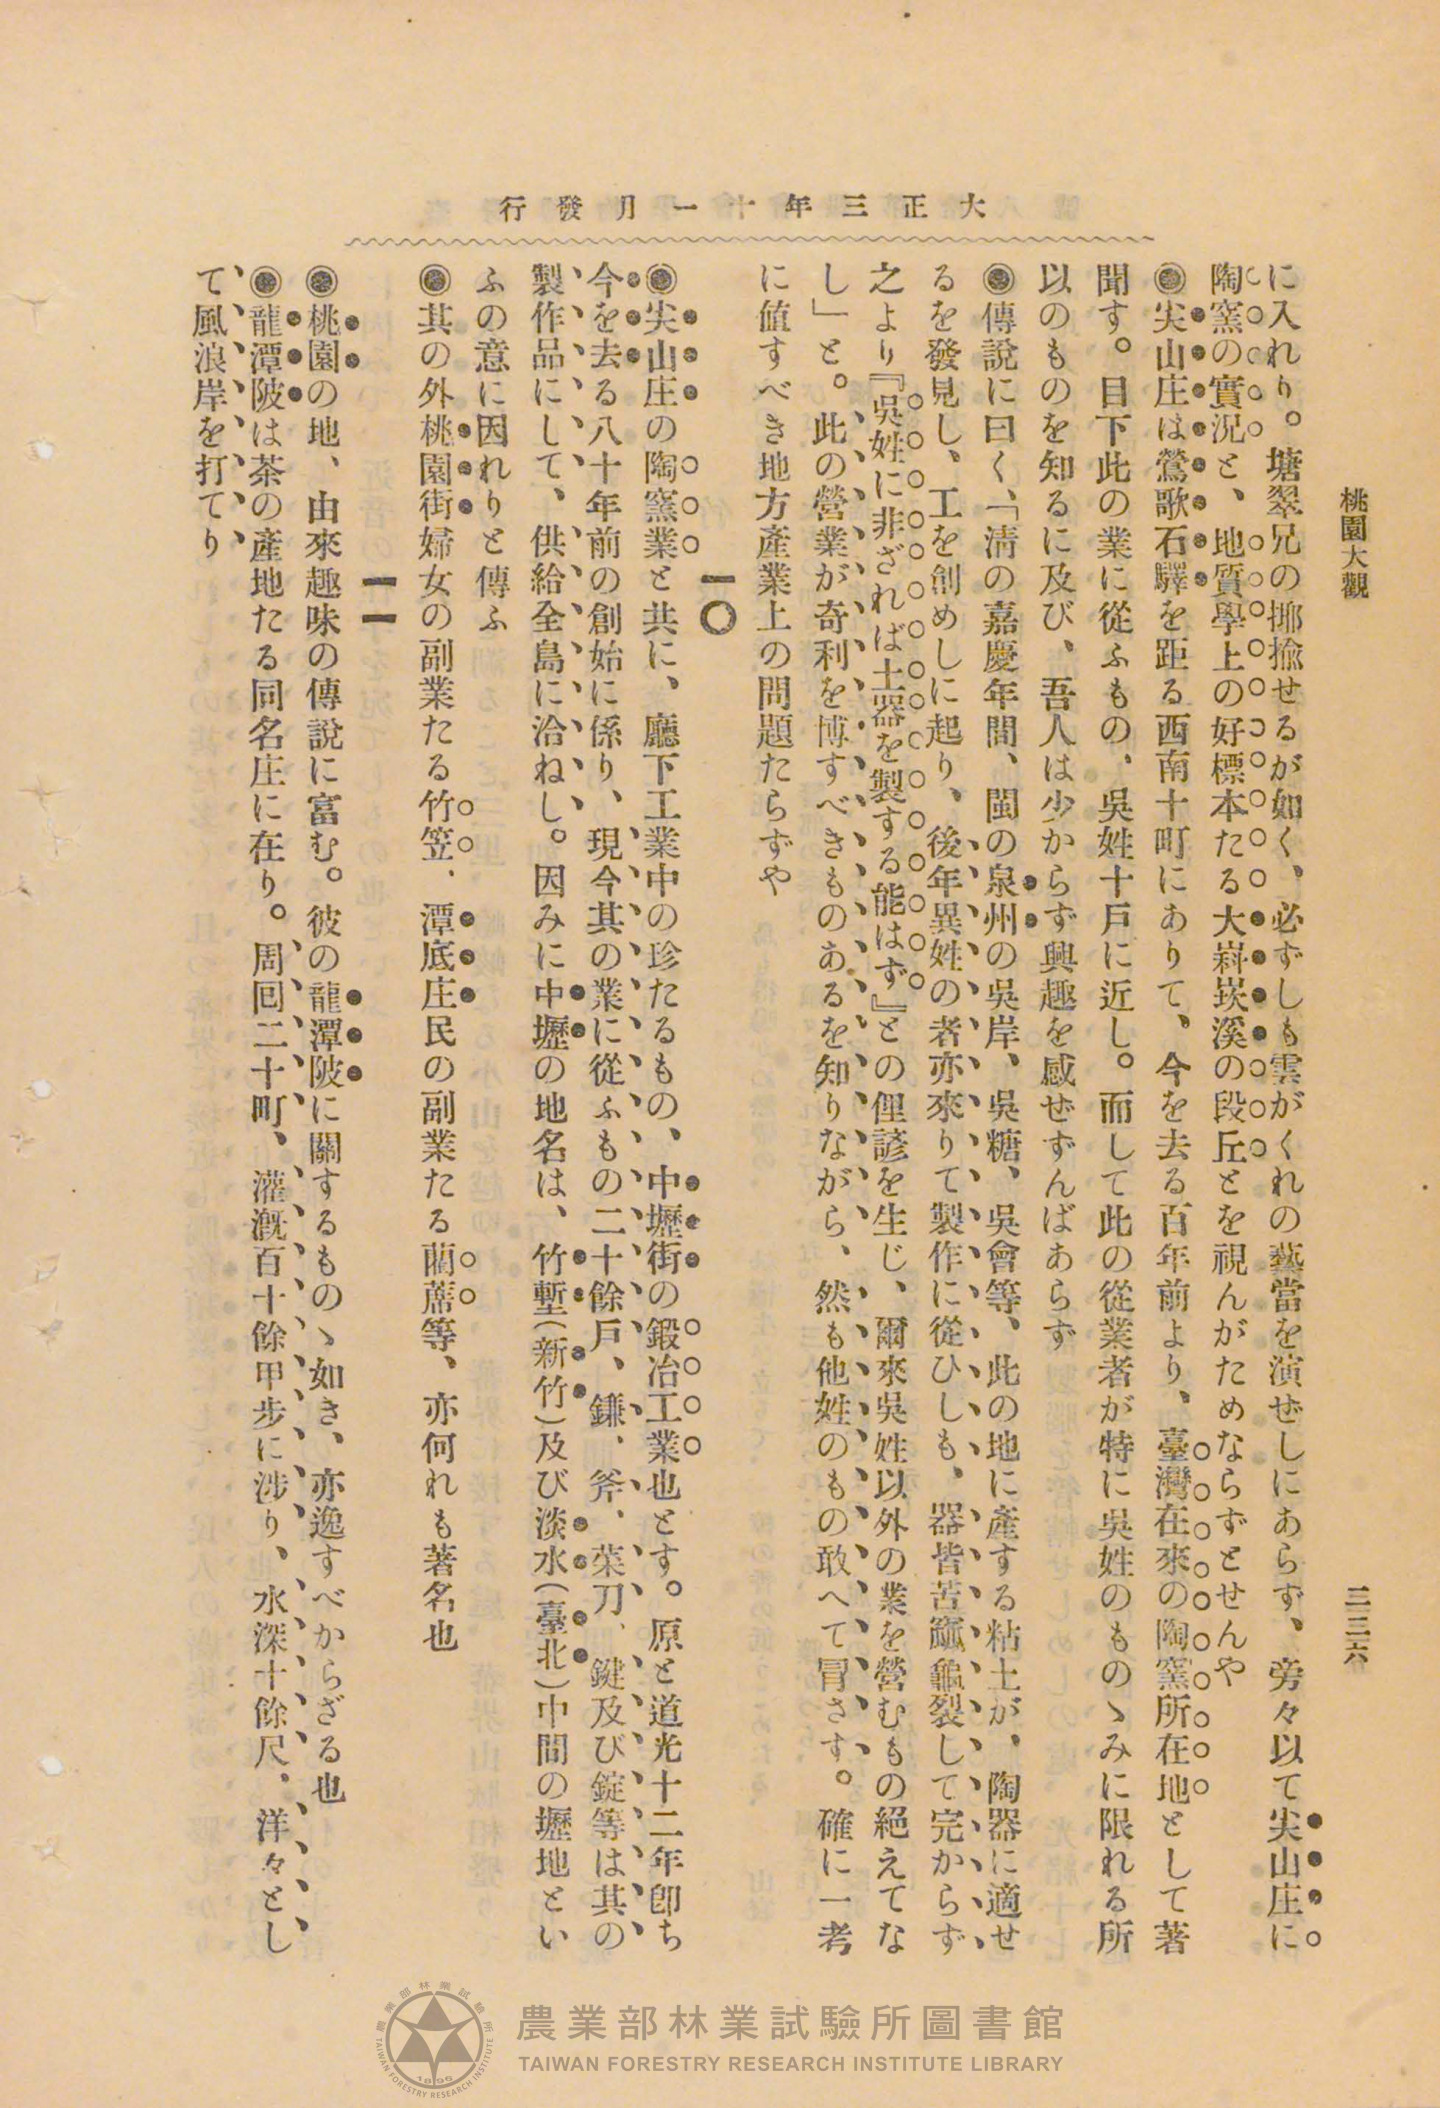 桃園大觀
二三六
大正三年十一月發行
に入れり。塘翠兄の揶揄せるが如く、必ずしも雲がくれの藝當を演ぜしにあらず、旁々以て尖山庄に
陶窯の實況と、地質學上の好標本たる大嵙崁溪の段丘とを視んがためならずとせんや
◉尖山庄は鶯歌石驛を距る西南十町にありて、今を去る百年前より、臺灣在來の陶窯所在地として著
聞す。目下此の業に從ふもの、吳姓十戶に近し。而して此の從業者が特に吳姓のものゝみに限れる所
以のものを知るに及び、吾人は少からず興趣を感ぜずんばあらず
◉傳說に曰く、「淸の嘉慶年間、閩の泉州の吳岸、吳糖、吳會等、此の地に產する粘土が、陶器に適せ
るを發見し、工を創めしに起り、後年異姓の者亦來りて製作に從ひしも、器皆苦窳龜裂して完からず
之より『吳姓に非ざれば土器を製する能はず』との俚諺を生じ、爾來吳姓以外の業を營むもの絕えてな
し」と。此の營業が奇利を博すべきものあるを知りながら、然も他姓のもの敢へて冐さず。確に一考
に値すべき地方產業上の問題たらずや
一〇
◉尖山庄の陶窯業と共に、廳下工業中の珍たるもの、中壢街の鍛冶工業也とす。原と道光十二年卽ち
今を去る八十年前の創始に係り、現今其の業に從ふもの二十餘戶、鎌、斧、菜刀、鍵及び錠等は其の
製作品にして、供給全島に洽ねし。因みに中壢の地名は、竹塹(新竹)及び淡水(臺北)中間の壢地とい
ふの意に因れりと傳ふ
◉其の外桃園街婦女の副業たる竹笠、潭底庄民の副業たる藺蓆等、亦何れも著名也
一一
◉桃園の地、由來趣味の傳說に富む。彼の龍潭陂に關するものゝ如き、亦逸すべからざる也
◉龍潭陂は茶の產地たる同名庄に在り。周囘二十町、灌漑百十餘甲步に涉り、水深十餘尺、洋々とし
て風浪岸を打てり
農業部林業試驗所圖書館
TAIWAN FORESTRY RESEARCH INSTITUTE LIBRARY
農業部林業試驗所
1896
TAIWAN FORESTRY RESEARCH INSTITUTE